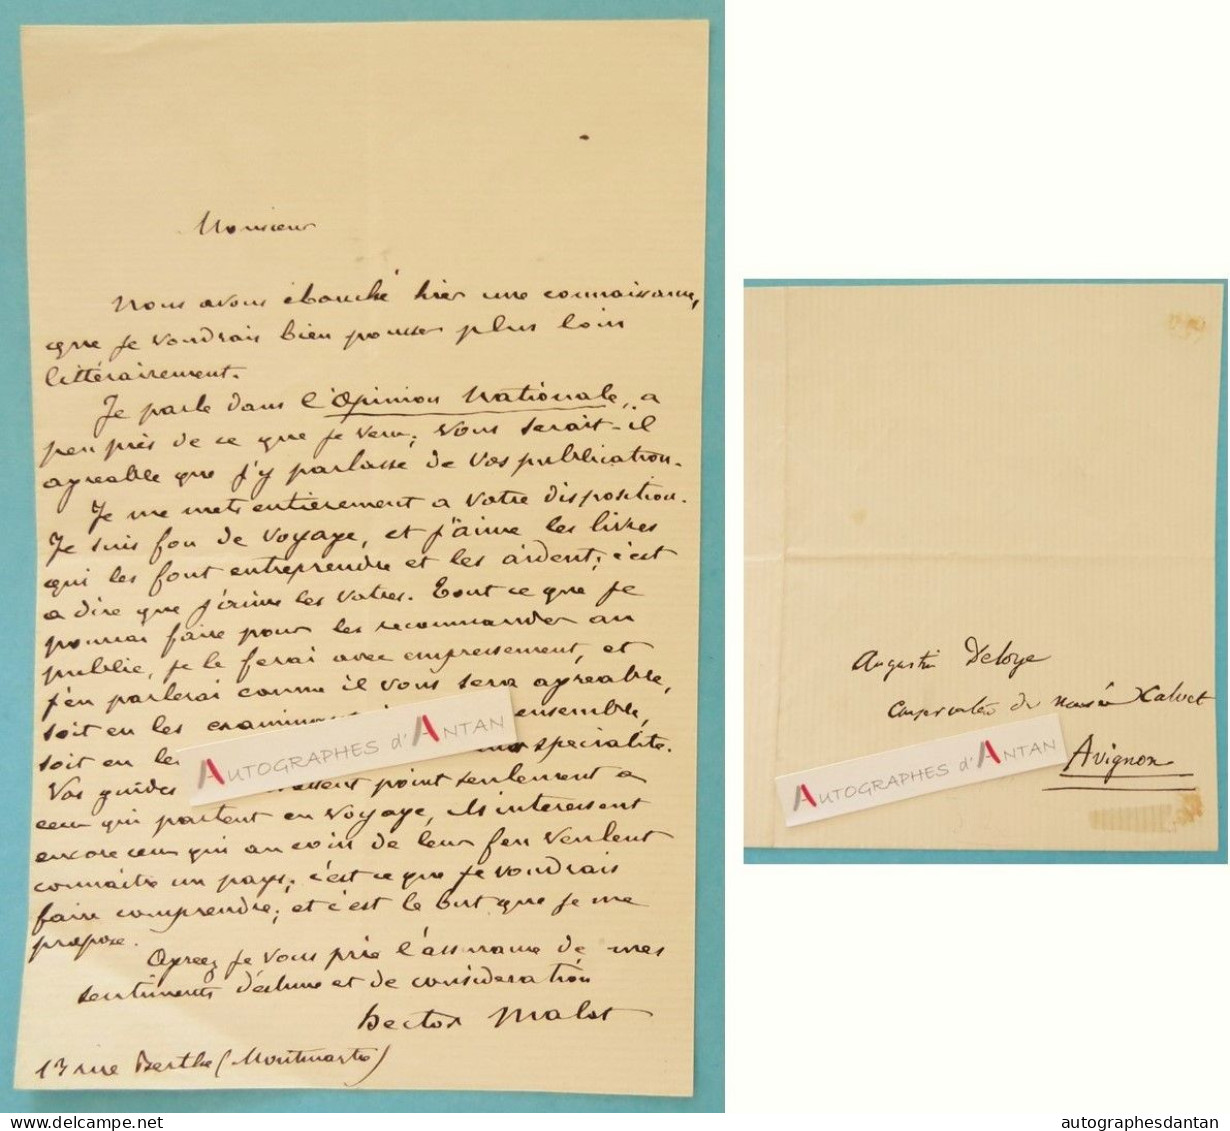 Monsieur
Nous avons ébauché hier une connaissance,
que je voudrais bien pousser plus loin
littérairement.
Je parle dans l'Opinion Nationale, a
peu près de ce que je veux; Vous serait-il
agreable que j'y parlasse de vos publication.
Je me mets entierement a votre disposition.
Je suis fou de voyage, et j'aime les livres
qui les font entreprendre et les aident; c'est
a dire que j'aime les votres. Tout ce que je
pourrai faire pour les recommander au
public, je le ferai avec empressement, et
j'en parlerai comme il vous sera agreable,
soit en les examinant ensemble,
soit en les specialité.
Vos guides point seulement a
ceux qui partent en voyage, ils interessent
encore ceux qui au coin de leur feu veulent
connaitre un pays; c'est ce que je voudrais
faire comprendre; et c'est le but que je me
propose.
Agreez je vous prie l'assurance de mes
sentiments d'estime et de consideration
Hector Malot
13 rue Berthe (Montmartre)
AUTOGRAPHES d'ANTAN
Augustin Deloye
Conservateur du musée Calvet
Avignon
AUTOGRAPHES d'ANTAN
delcampe.net
autographesdantan